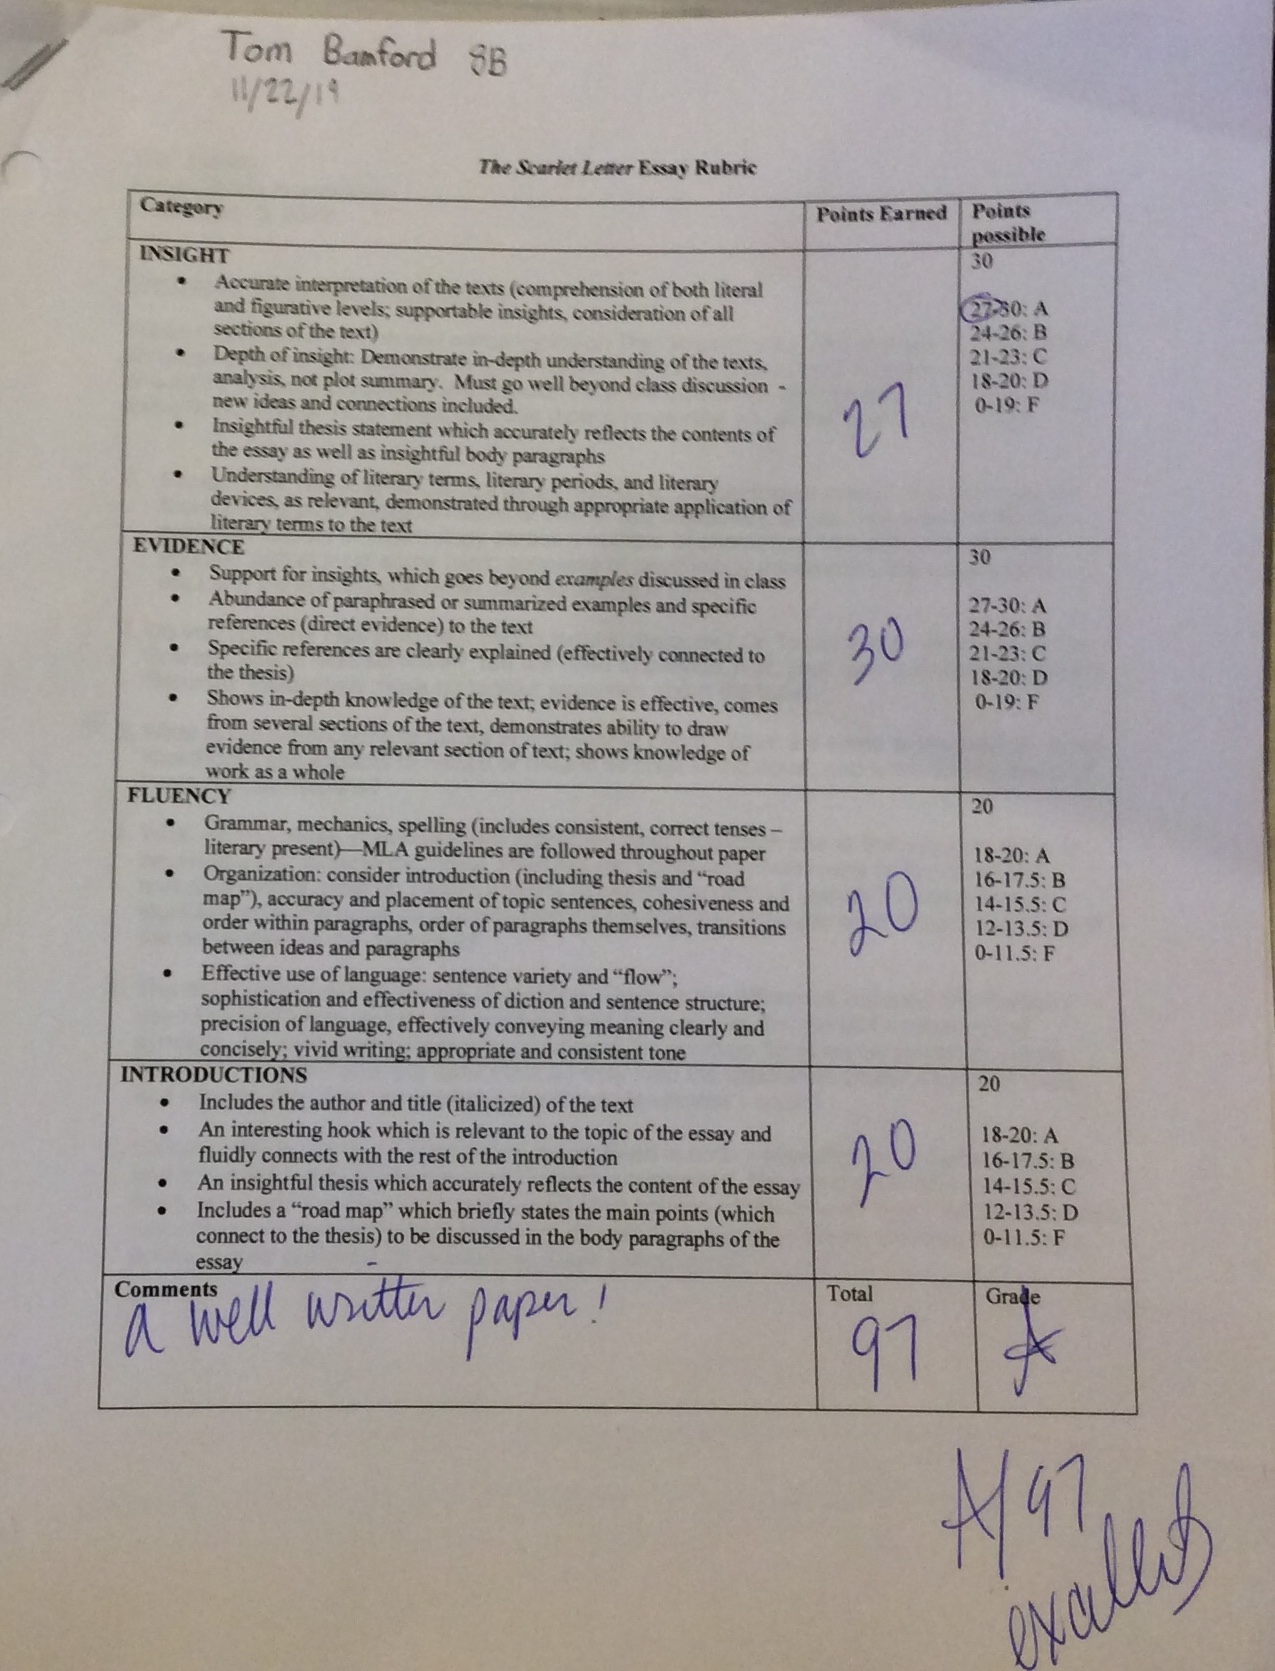 Tom Bamford 8B
11/22/19
The Scarlet Letter Essay Rubric
Category
Points Earned
Points
possible
INSIGHT
• Accurate interpretation of the texts (comprehension of both literal
and figurative levels; supportable insights, consideration of all
sections of the text)
• Depth of insight: Demonstrate in-depth understanding of the texts,
analysis, not plot summary. Must go well beyond class discussion -
new ideas and connections included.
• Insightful thesis statement which accurately reflects the contents of
the essay as well as insightful body paragraphs
• Understanding of literary terms, literary periods, and literary
devices, as relevant, demonstrated through appropriate application of
literary terms to the text
27
30
27-30: A
24-26: B
21-23: C
18-20: D
0-19: F
EVIDENCE
• Support for insights, which goes beyond examples discussed in class
• Abundance of paraphrased or summarized examples and specific
references (direct evidence) to the text
• Specific references are clearly explained (effectively connected to
the thesis)
• Shows in-depth knowledge of the text; evidence is effective, comes
from several sections of the text, demonstrates ability to draw
evidence from any relevant section of text; shows knowledge of
work as a whole
30
30
27-30: A
24-26: B
21-23: C
18-20: D
0-19: F
FLUENCY
• Grammar, mechanics, spelling (includes consistent, correct tenses –
literary present)—MLA guidelines are followed throughout paper
• Organization: consider introduction (including thesis and “road
map”), accuracy and placement of topic sentences, cohesiveness and
order within paragraphs, order of paragraphs themselves, transitions
between ideas and paragraphs
• Effective use of language: sentence variety and “flow”;
sophistication and effectiveness of diction and sentence structure;
precision of language, effectively conveying meaning clearly and
concisely; vivid writing; appropriate and consistent tone
20
20
18-20: A
16-17.5: B
14-15.5: C
12-13.5: D
0-11.5: F
INTRODUCTIONS
• Includes the author and title (italicized) of the text
• An interesting hook which is relevant to the topic of the essay and
fluidly connects with the rest of the introduction
• An insightful thesis which accurately reflects the content of the essay
• Includes a “road map” which briefly states the main points (which
connect to the thesis) to be discussed in the body paragraphs of the
essay
20
20
18-20: A
16-17.5: B
14-15.5: C
12-13.5: D
0-11.5: F
Comments
a well written paper!
Total
97
Grade
A
A/97
excellent